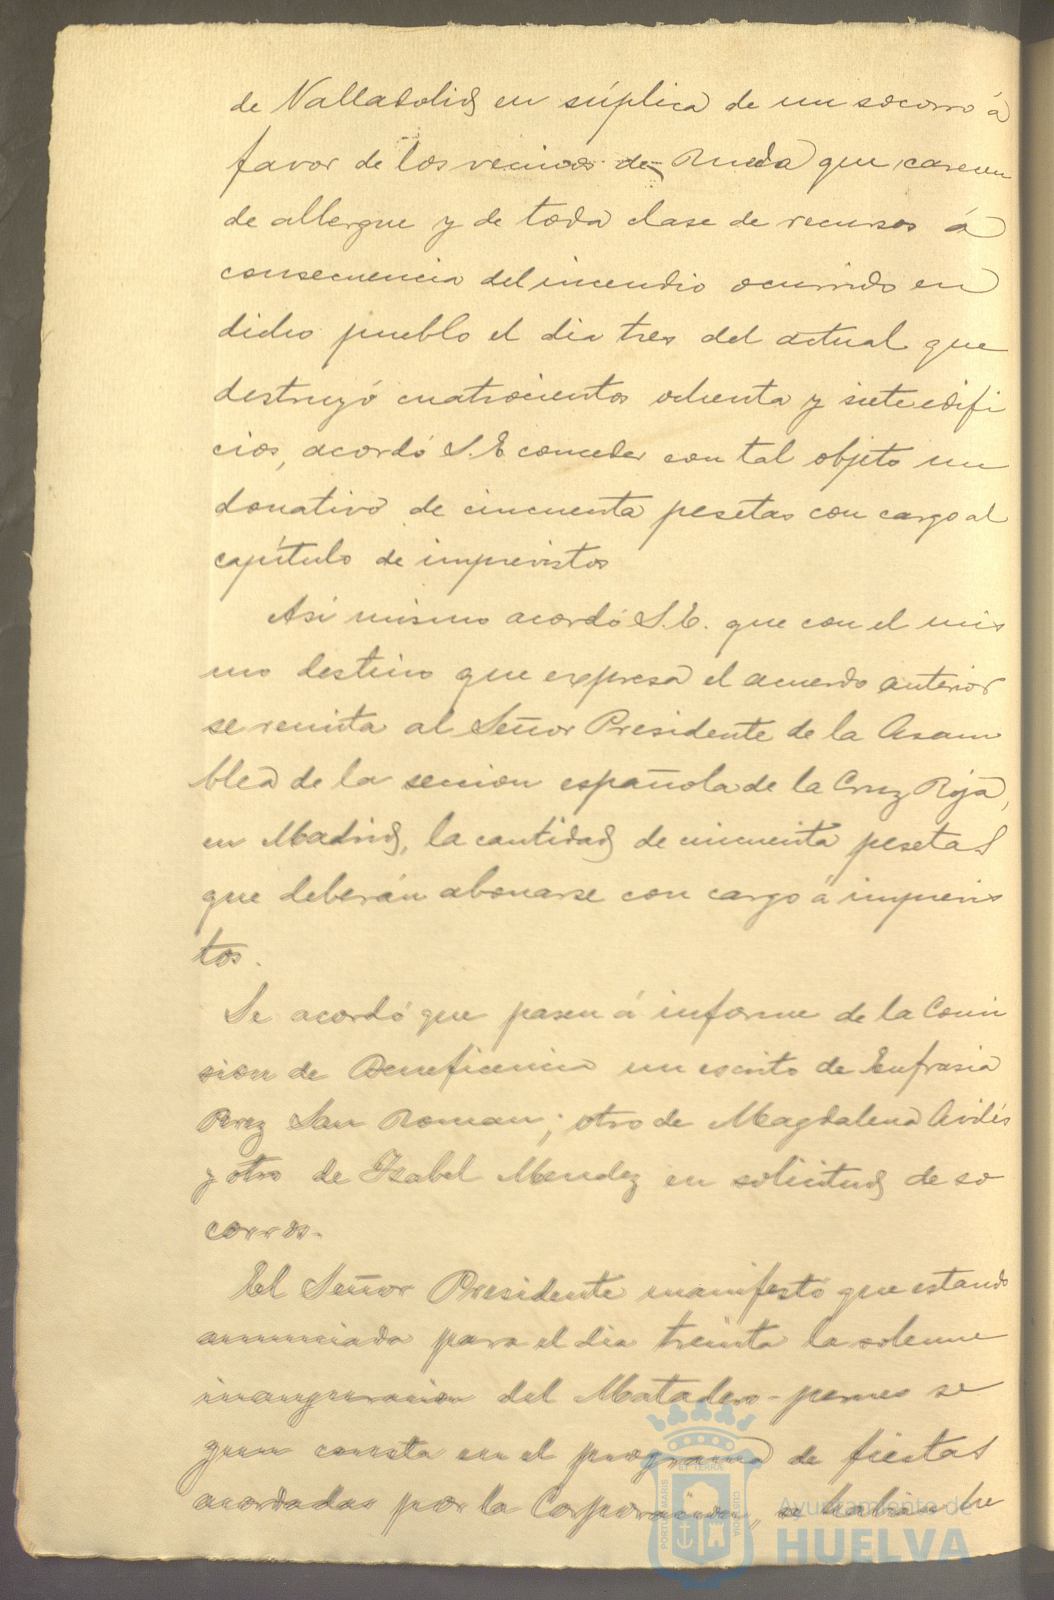 de Valladolid en súplica de un socorro á
favor de los vecinos de Rueda que carecen
de albergue y de toda clase de recursos á
consecuencia del incendio ocurrido en
dicho pueblo el dia tres del actual que
destruyó cuatrocientos ochenta y siete edifi
cios, acordó S.E. conceder con tal objeto un
donativo de cincuenta pesetas con cargo al
capítulo de imprevistos
Asi mismo acordó S.E. que con el mis
mo destino que expresa el acuerdo anterior
se remita al Señor Presidente de la Asam
blea de la seccion española de la Cruz Roja,
en Madrid, la cantidad de cincuenta pesetas
que deberán abonarse con cargo á imprevis
tos.
Se acordó que pasen á informe de la Comi
sion de Beneficencia un escrito de Eufrasia
Perez San Roman; otro de Magdalena Avilés
y otro de Isabel Mendez en solicitud de so
corros.
El Señor Presidente manifestó que estando
anunciada para el dia treinta la solemne
inauguracion del Matadero- se
gun consta en el programa de fiestas
acordadas por la Corporacion, se habian he
PORTUS MARIS ET TERRÆ CUSTODIA
Ayuntamiento de
HUELVA